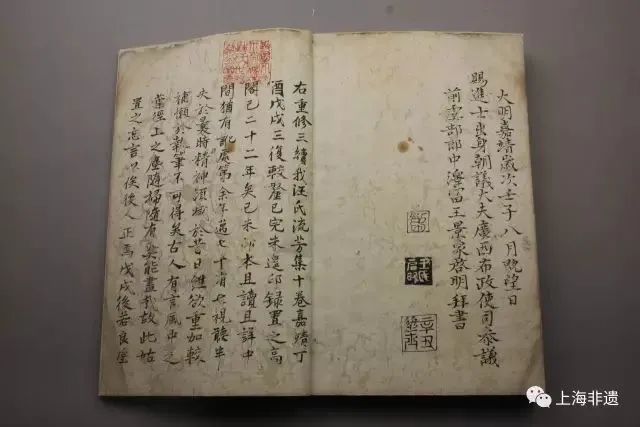 大明嘉靖歲次壬子八月既望日
賜進士出身朝議大夫廣西布政使司參議
前虞部郎中王景象啓明拜書
辛丑
右重修三續我汪氏流芳集十卷嘉靖丁
酉戊戌三復較已完未遑印錄置之高
閣已二十二年矣已未印本且讀且詳中
間猶有訛處第余年過七十有七視聽半
失於曩時精神須減於昔日雖欲重加較
補懶於執筆不可得矣古人有言風中之
葉徑上之塵隨掃隨有奚能盡哉故此姑
置之言以俟後人正焉戊戌後若良
上海非遗